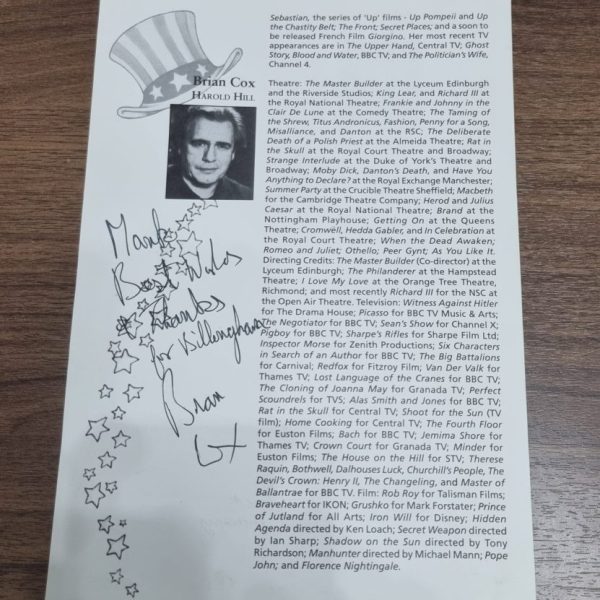 Sebastian, the series of 'Up' films - Up Pompeii and Up
the Chastity Belt; The Front; Secret Places; and a soon to
be released French Film Giorgino. Her most recent TV
appearances are in The Upper Hand, Central TV; Ghost
Story, Blood and Water, BBC TV; and The Politician's Wife,
Channel 4.
Brian Cox
HAROLD HILL
Theatre: The Master Builder at the Lyceum Edinburgh
and the Riverside Studios; King Lear, and Richard III at
the Royal National Theatre; Frankie and Johnny in the
Clair De Lune at the Comedy Theatre; The Taming of
the Shrew, Titus Andronicus, Fashion, Penny for a Song,
Misalliance, and Danton at the RSC; The Deliberate
Death of a Polish Priest at the Almeida Theatre; Rat in
the Skull at the Royal Court Theatre and Broadway;
Strange Interlude at the Duke of York's Theatre and
Broadway; Moby Dick, Danton's Death, and Have You
Anything to Declare? at the Royal Exchange Manchester;
Summer Party at the Crucible Theatre Sheffield; Macbeth
for the Cambridge Theatre Company; Herod and Julius
Caesar at the Royal National Theatre; Brand at the
Nottingham Playhouse; Getting On at the Queens
Theatre; Cromwell, Hedda Gabler, and In Celebration at
the Royal Court Theatre; When the Dead Awaken;
Romeo and Juliet; Othello; Peer Gynt; As You Like It.
Directing Credits: The Master Builder (Co-director) at the
Lyceum Edinburgh; The Philanderer at the Hampstead
Theatre; I Love My Love at the Orange Tree Theatre,
Richmond; and most recently Richard III for the NSC at
the Open Air Theatre. Television: Witness Against Hitler
for The Drama House; Picasso for BBC TV Music & Arts;
The Negotiator for BBC TV; Sean's Show for Channel X;
Pigboy for BBC TV; Sharpe's Rifles for Sharpe Film Ltd;
Inspector Morse for Zenith Productions; Six Characters
in Search of an Author for BBC TV; The Big Battalions
for Carnival; Redfox for Fitzroy Film; Van Der Valk for
Thames TV; Lost Language of the Cranes for BBC TV;
The Cloning of Joanna May for Granada TV; Perfect
Scoundrels for TVS; Alas Smith and Jones for BBC TV;
Rat in the Skull for Central TV; Shoot for the Sun (TV
film); Home Cooking for Central TV; The Fourth Floor
for Euston Films; Bach for BBC TV; Jemima Shore for
Thames TV; Crown Court for Granada TV; Minder for
Euston Films; The House on the Hill for STV; Therese
Raquin, Bothwell, Dalhouses Luck, Churchill's People, The
Devil's Crown: Henry II, The Changeling, and Master of
Ballantrae for BBC TV. Film: Rob Roy for Talisman Films;
Braveheart for IKON; Grushko for Mark Forstater; Prince
of Jutland for All Arts; Iron Will for Disney; Hidden
Agenda directed by Ken Loach; Secret Weapon directed
by Ian Sharp; Shadow on the Sun directed by Tony
Richardson; Manhunter directed by Michael Mann; Pope
John; and Florence Nightingale.
Mark
Best Wishes
& Thanks
for Billingham
Brian
Cox